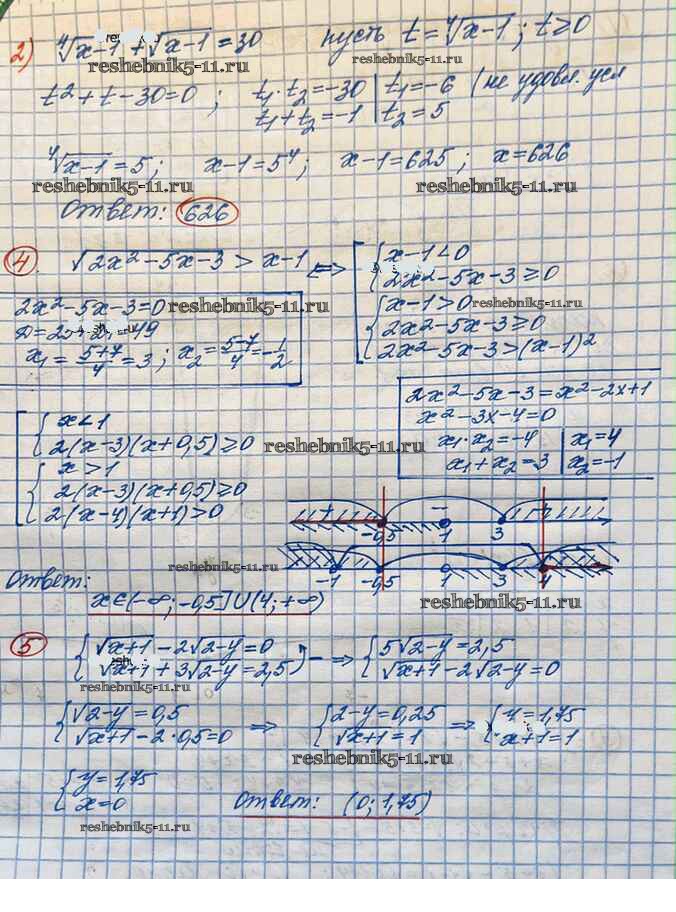 2) ⁴√x-1 + √x-1 = 30 пусть t = ⁴√x-1; t≥0
reshebnik5-11.ru
t²+t-30=0; t₁·t₂=-30 | t₁=-6 (не удовл. усл
t₁+t₂=-1 | t₂=5
⁴√x-1=5; x-1=5⁴; x-1=625; x=626
reshebnik5-11.ru reshebnik5-11.ru
Ответ: 626
4. √2x²-5x-3 > x-1 <=> [ { x-1<0
2x²-5x-3≥0
{ x-1>0 reshebnik5-11.ru
2x²-5x-3≥0
2x²-5x-3>(x-1)²
2x²-5x-3=0 reshebnik5-11.ru
=49
x₁=5+7/4=3; x₂=5-7/4=-1/2
2x²-5x-3=x²-2x+1
x²-3x-4=0
x₁·x₂=-4 | x₁=4
x₁+x₂=3 | x₂=-1
[ { x<1
2(x-3)(x+0,5)≥0 reshebnik5-11.ru
{ x>1
2(x-3)(x+0,5)≥0
2(x-4)(x+1)>0
+ - +
-0,5 1 3
reshebnik5-11.ru
-1 -0,5 1 3 4
Ответ:
x∈(-∞;-0,5]∪(4;+∞)
reshebnik5-11.ru
5 { √x+1-2√2-y=0
√x+1+3√2-y=2,5 ) - => { 5√2-y=2,5
√x+1-2√2-y=0
reshebnik5-11.ru
{ √2-y=0,5
√x+1-2·0,5=0 => { 2-y=0,25
√x+1=1 => { y=1,75
x+1=1
reshebnik5-11.ru
{ y=1,75
x=0 Ответ: (0;1,75)
reshebnik5-11.ru